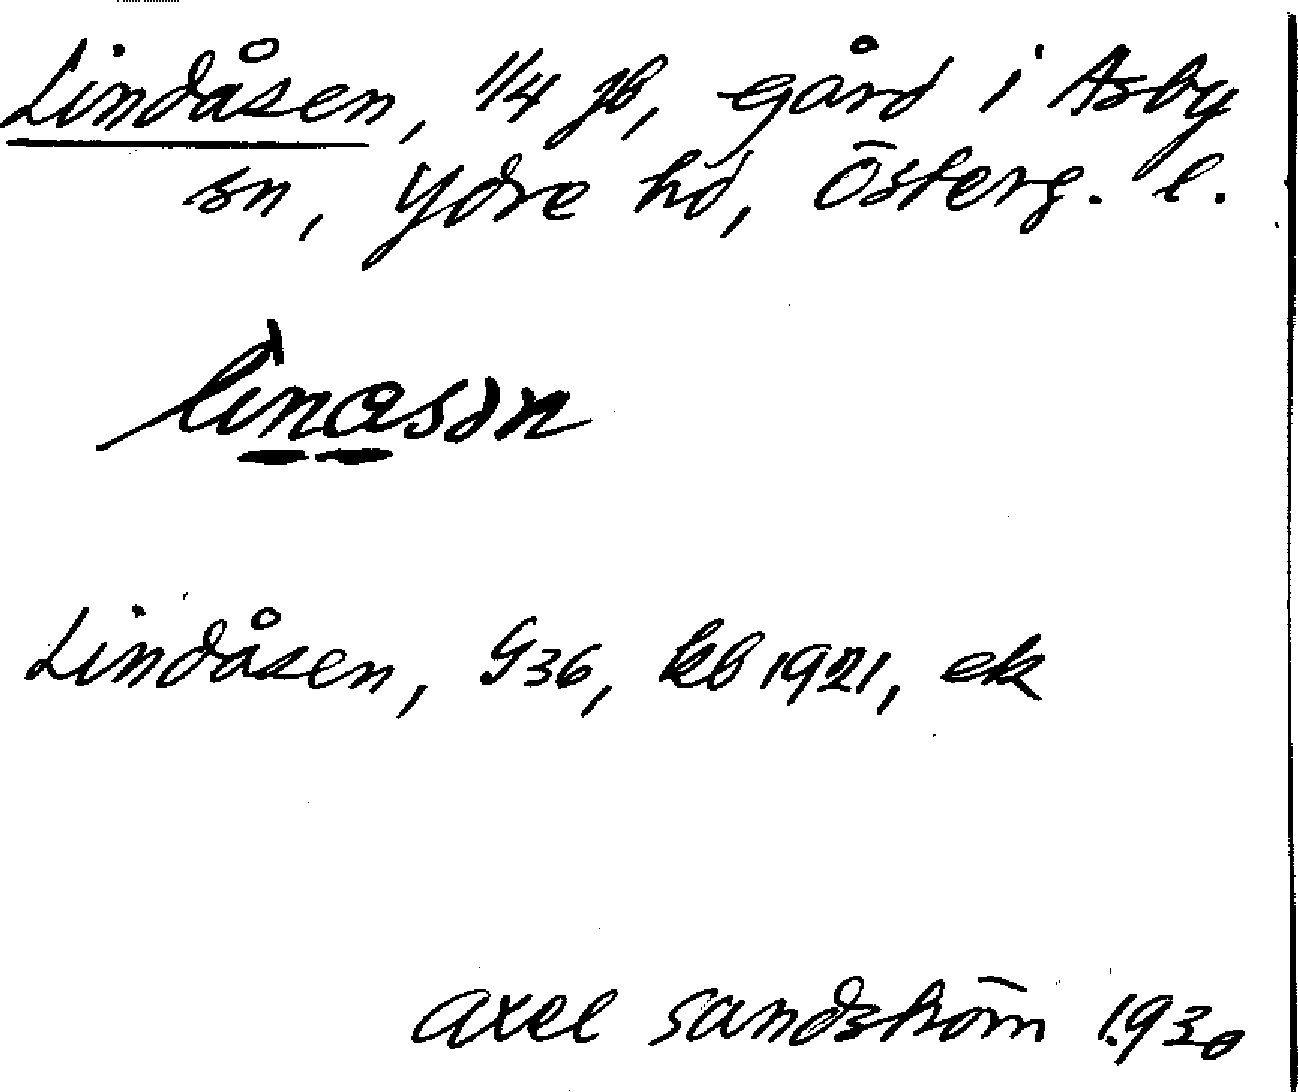 Lindåsen, 1/4 jb, gård i Asby
sn, Ydre hd, Österg. l.
Lindåsen, G36, kb 1921, ek
Axel Sandström 1.930